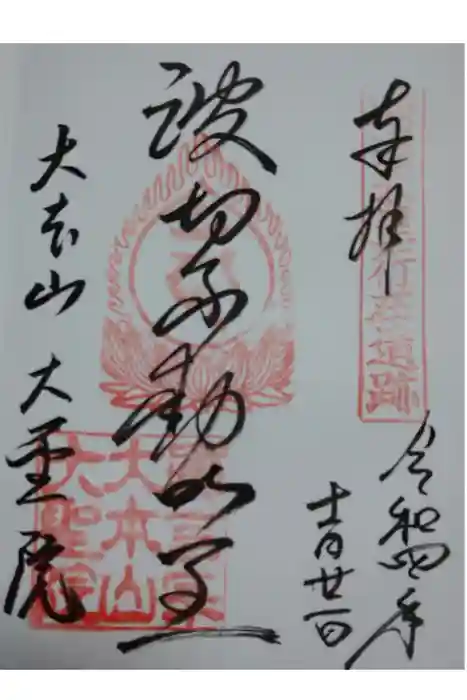 奉拝
令和四年
十一月廿一日
波切不動明王
大本山 大聖院
大本山
大聖院